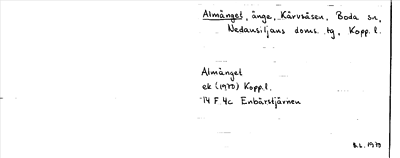 Almånget, änge, Kårvsåsen, Boda sn,
Nedansiljans doms. tg, Kopp. l.
Almånget
ek (1970) Kopp. l.
14 F 4c Enbärstjärnen
B.L. 1979